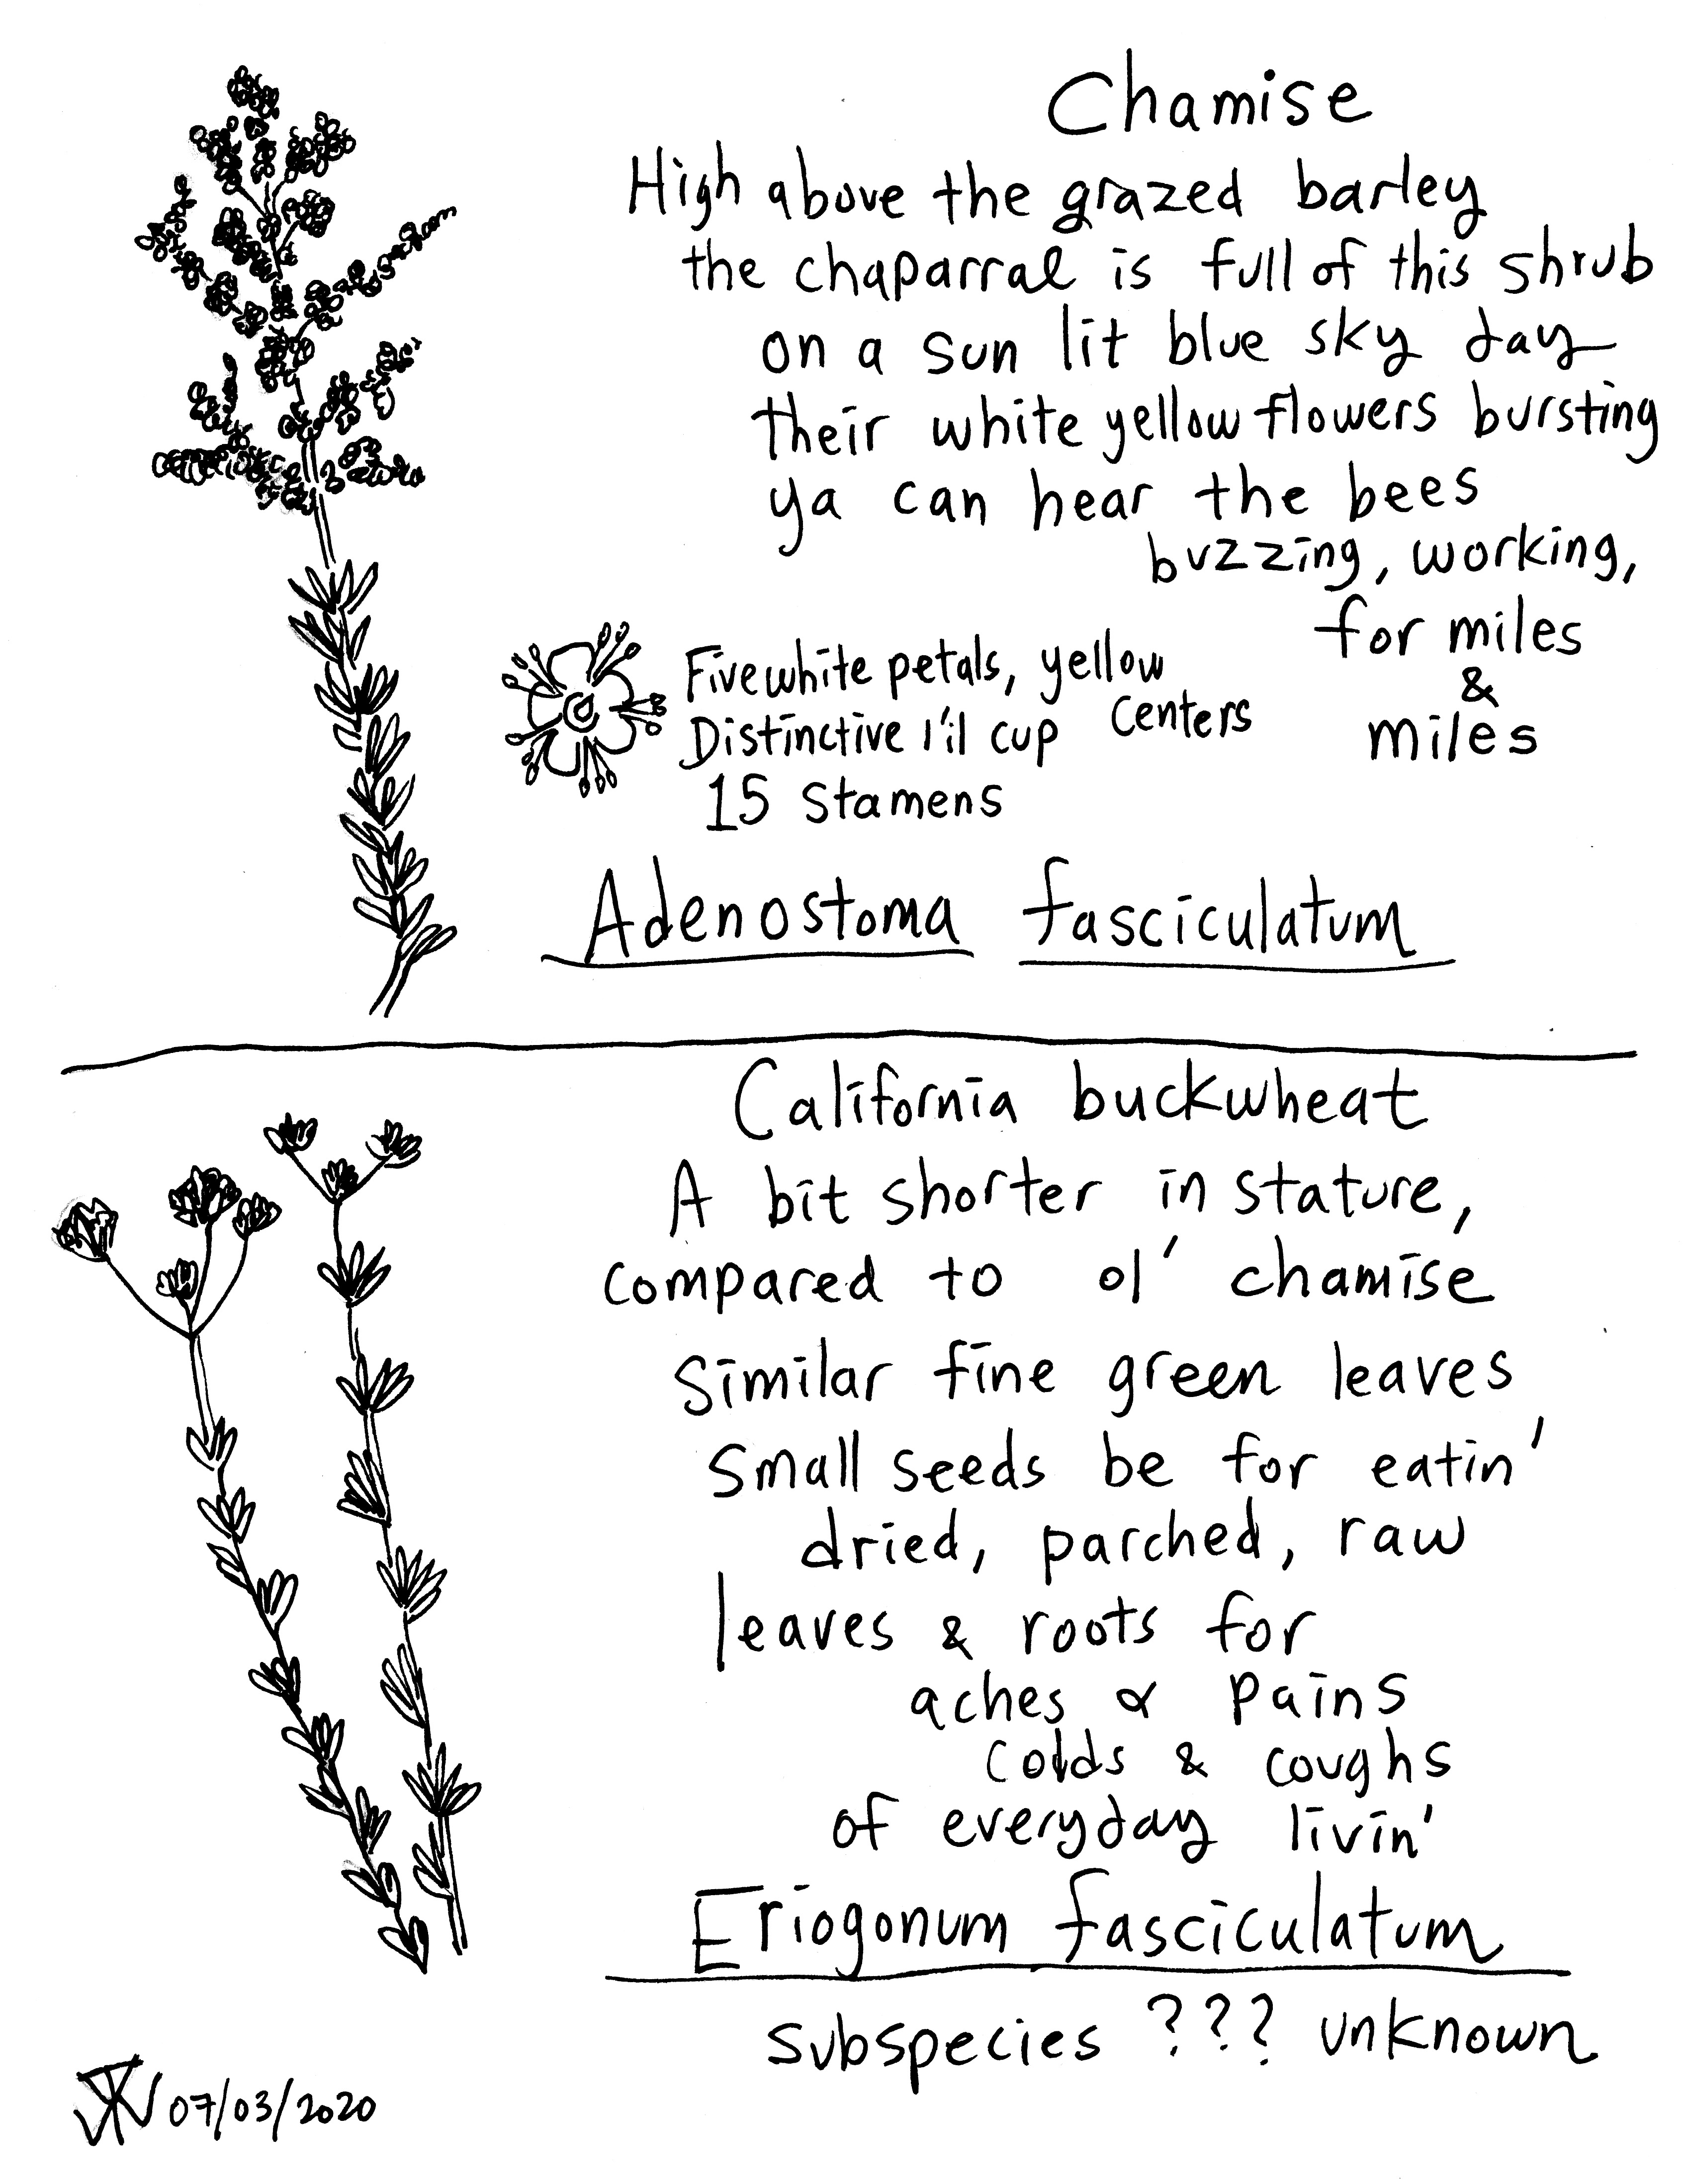 Chamise
High above the grazed barley
the chaparral is full of this shrub
on a sun lit blue sky day
their white yellow flowers bursting
ya can hear the bees
buzzing, working,
for miles
&
miles
Five white petals, yellow
centers
Distinctive l'il cup
15 stamens
Adenostoma fasciculatum
California buckwheat
A bit shorter in stature,
compared to ol' chamise
Similar fine green leaves
Small seeds be for eatin'
dried, parched, raw
leaves & roots for
aches & pains
colds & coughs
of everyday livin'
Eriogonum fasciculatum
subspecies ??? unknown
07/03/2020